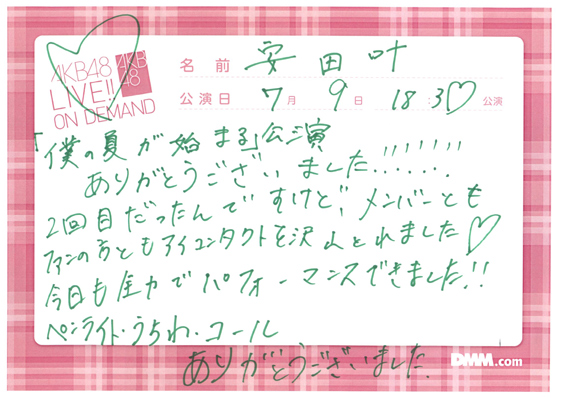 AKB48
LIVE!!
ON DEMAND
AKB
48
名前 安田叶
公演日 7月 9日 18:3♡ 公演
「僕の夏が始まる」公演
ありがとうございました!!!!!!
2回目だったんですけど、メンバーとも
ファンの方ともアイコンタクトを沢山とれました♡
今日も全力でパフォーマンスできました!!
ペンライト・うちわ・コール
ありがとうございました.
DMM.com